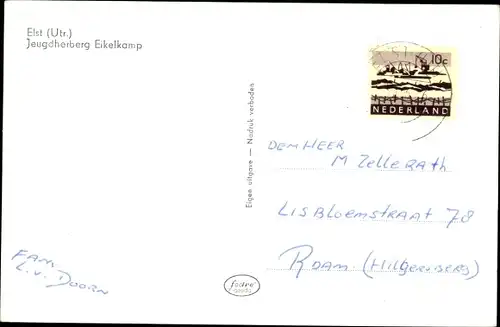 Elst (Utr.)
Jeugdherberg Eikelkamp
10c
NEDERLAND
Eigen uitgave — Nadruk verboden
DEM HEER
M Zellerath
LISBloemstraat 78
RDAM. (Hillegersberg)
FAM.
L. v. DOORN